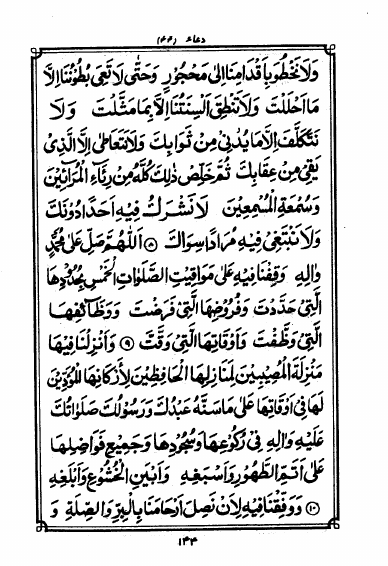 دعاء (۴۴)
وَلَا نَخْطُوَ بِاَقْدَامِنَا اِلىٰ مَحْجُوْرٍ وَحَتّٰى لَا تَعِىَ بُطُوْنُنَا اِلَّا
مَا اَحْلَلْتَ وَلَا تَنْطِقَ اَلْسِنَتُنَا اِلَّا بِمَا مَثَّلْتَ وَلَا
نَتَكَلَّفَ اِلَّا مَا يُدْنِىْ مِنْ ثَوَابِكَ وَلَا نَتَعَاطىٰ اِلَّا الَّذِىْ
يَقِىْ مِنْ عِقَابِكَ ثُمَّ خَلِّصْ ذٰلِكَ كُلَّهُ مِنْ رِئَآءِ الْمُرَآئِيْنَ
وَسُمْعَةِ الْمُسْمِعِيْنَ لَا نُشْرِكُ فِيْهِ اَحَدًا دُوْنَكَ
وَلَا نَبْتَغِىْ فِيْهِ مُرَادًا سِوَاكَ ۸ اَللّٰهُمَّ صَلِّ عَلىٰ مُحَمَّدٍ
وَاٰلِهِ وَقِفْنَا فِيْهِ عَلىٰ مَوَاقِيْتِ الصَّلَوَاتِ الْخَمْسِ بِحُدُوْدِهَا
الَّتِىْ حَدَّدْتَ وَفُرُوْضِهَا الَّتِىْ فَرَضْتَ وَوَظَآئِفِهَا
الَّتِىْ وَظَّفْتَ وَاَوْقَاتِهَا الَّتِىْ وَقَّتَّ ۹ وَاَنْزِلْنَا فِيْهَا
مَنْزِلَةَ الْمُصِيْبِيْنَ لِمَنَازِلِهَا الْحَافِظِيْنَ لِاَرْكَانِهَا الْمُؤَدِّيْنَ
لَهَا فِىْ اَوْقَاتِهَا عَلىٰ مَا سَنَّهُ عَبْدُكَ وَرَسُوْلُكَ صَلَوَاتُكَ
عَلَيْهِ وَاٰلِهِ فِىْ رُكُوْعِهَا وَسُجُوْدِهَا وَجَمِيْعِ فَوَاضِلِهَا
عَلىٰ اَتَمِّ الطَّهُوْرِ وَاَسْبَغِهِ وَاَبْيَنِ الْخُشُوْعِ وَاَبْلَغِهِ
۱۰ وَوَفِّقْنَا فِيْهِ لِاَنْ نَصِلَ اَرْحَامَنَا بِالْبِرِّ وَالصِّلَةِ وَ
۱۴۴